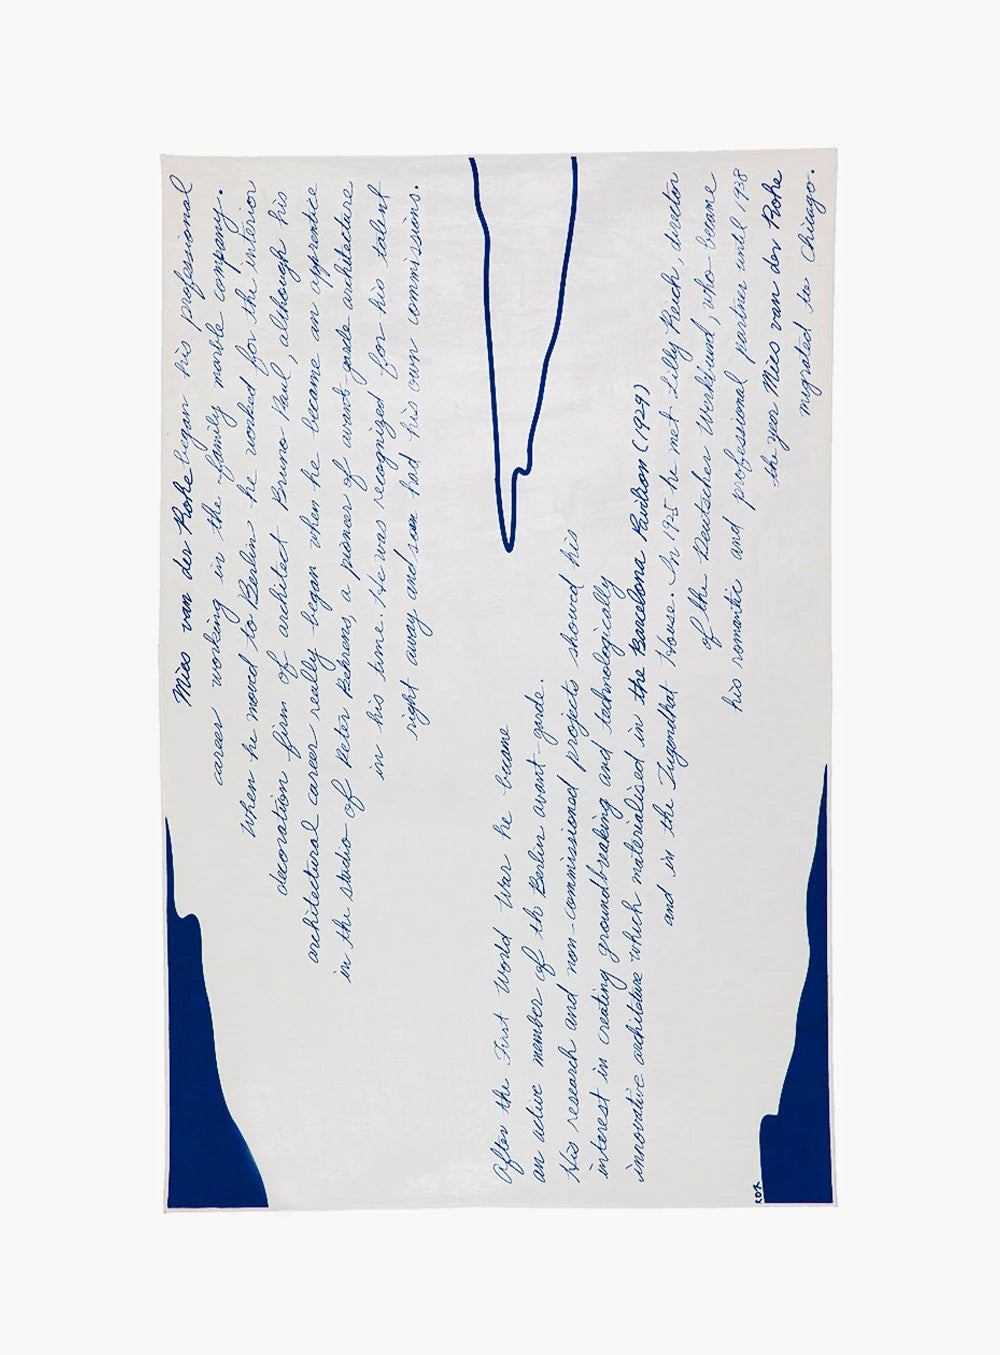 Mies van der Rohe began his professional
career working in the family marble company.
When he moved to Berlin he worked for the interior
decoration firm of architect Bruno Paul, although his
architectural career really began when he became an apprentice
in the studio of Peter Behrens, a pioneer of avant-garde architecture
in his time. He was recognized for his talent
right away and soon had his own commissions.
After the First World War he became
an active member of th Berlin avant-garde.
His research and non-commissioned projects showed his
interest in creating groundbreaking and technologically
innovative architecture which materialised in the Barcelona Pavilion (1929)
and in the Tugendhat House. In 1925 he met Lilly Reich, director
of the Deutscher Werkbund, who became
his romantic and professional partner until 1938
the year Mies van der Rohe
migrated to Chicago.